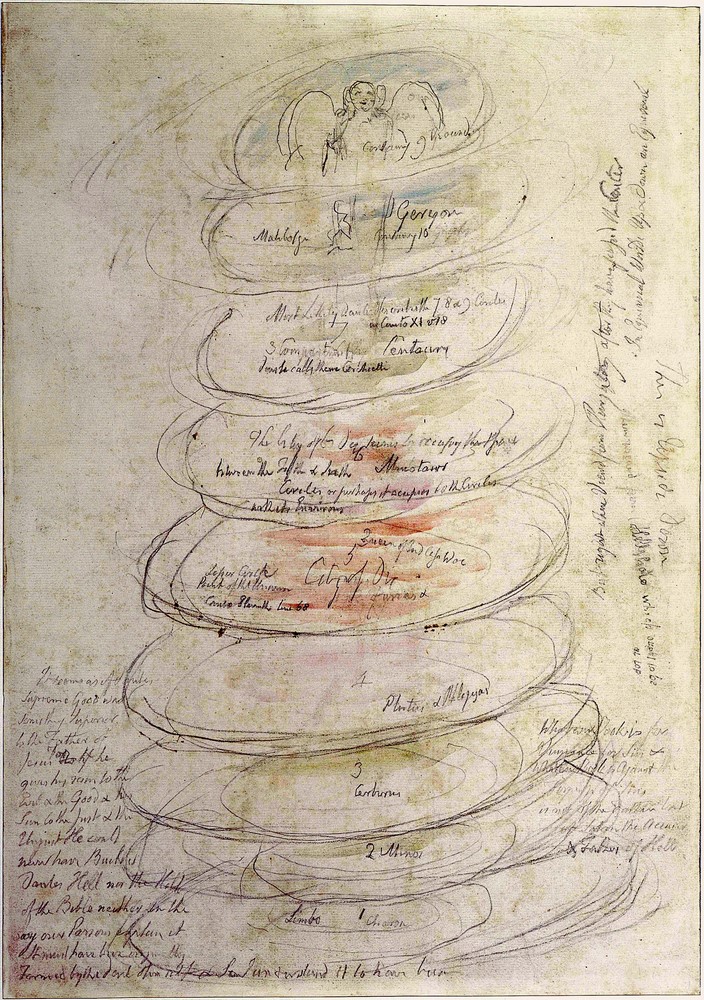 Containing 9 Rounds
Malebolge
Geryon
Containing 10
Most likely Dante describes the 7 8 & 9 Circles
in Canto XI v 18
3 Compartments
Dante calls them Cerchietti
Centaurs
The City of Dis seems to occupy the Space
between the Fifth & Sixth
Minotaur
Circles or perhaps it occupies both Circles
with its Environs
5
Queen of
Lesser Circle
Point of the Universe
Canto Eleventh line 68
City of Dis
furies &
4
Plutus & Phlegyas
3
Cerberus
2 Minos
Limbo
1 Charon
It seems as if Dantes
Supreme Good was
something Superior
to the Father of
Jesus
he
gives his rain to the
Evil & the Good & his
Sun to the Just & the
Unjust He could
never have Builded
Dantes Hell nor the Hell
of the Bible neither in the
way our Parsons explain it
It must have been
Formed by the devil
& So I understand it to have been
Whatever Book is for
Vengeance for Sin &
whatever Book is Against the
Forgiveness of Sins
is not of the Father but
of Satan the Accuser
& Father of Hell
This is Upside Down
But right when Viewd from Purgatory after they have passed the Center
In Equivocal Worlds Up & Down are Equivocal